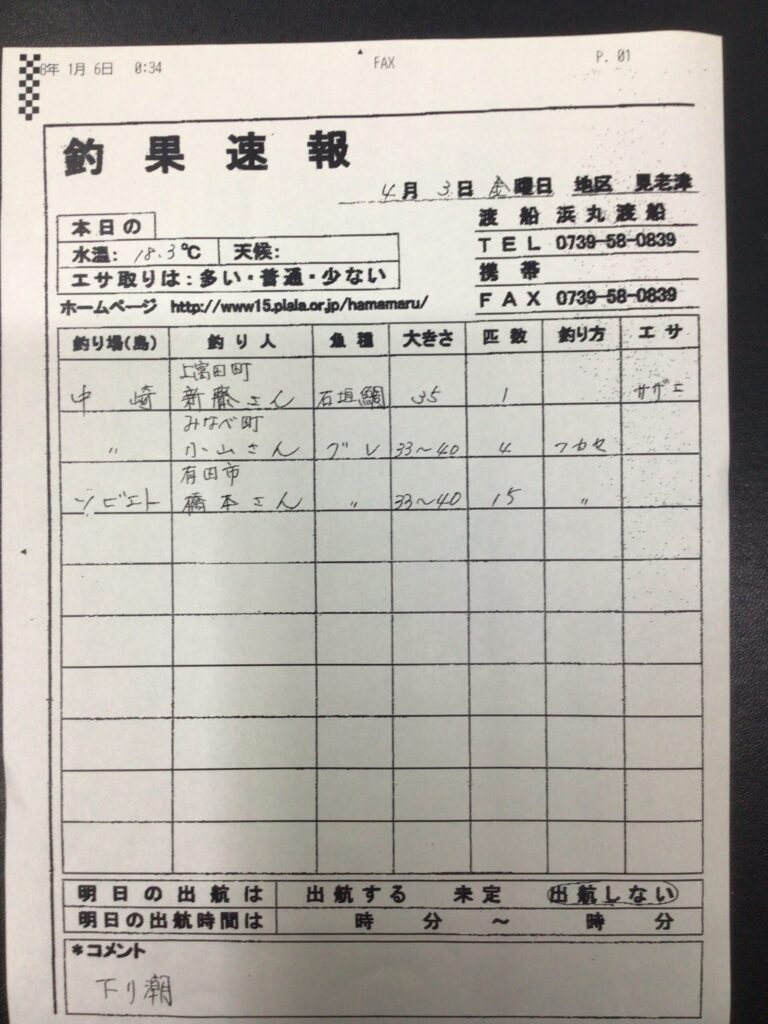 8年 1月 6日 0:34 FAX P. 01
釣果速報
4月 3日 金曜日 地区 見老津
本日の
水温: 18.3℃ 天候:
エサ取りは:多い・普通・少ない
渡船 浜丸渡船
TEL 0739-58-0839
携帯
FAX 0739-58-0839
ホームページ http://www15.plala.or.jp/hamamaru/
釣り場(島) 釣り人 魚種 大きさ 匹数 釣り方 エサ
上富田町
中崎 新藤さん 石垣鯛 35 1 サザエ
みなべ町
〃 小山さん グレ 33~40 4 フカセ
有田市
ソビエト 橋本さん 〃 33~40 15 〃
明日の出航は 出航する 未定 出航しない
明日の出航時間は 時 分 ~ 時 分
*コメント
下り潮